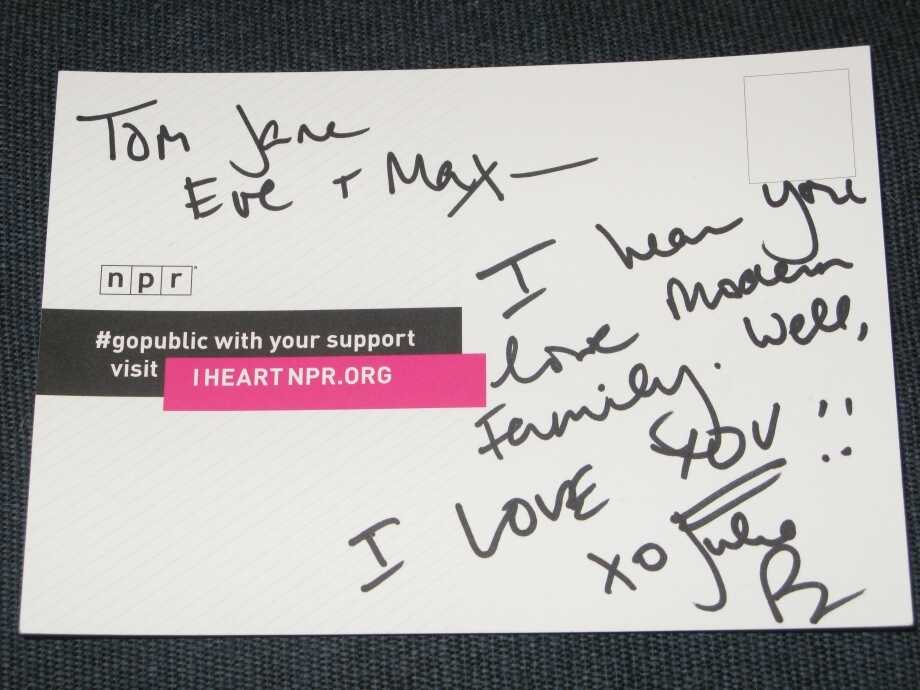 Tom Jane
Eve + Max —
I hear you
love Modern
Family. Well,
I LOVE YOU!!
xo Julie
npr
#gopublic with your support
visit I HEART NPR.ORG